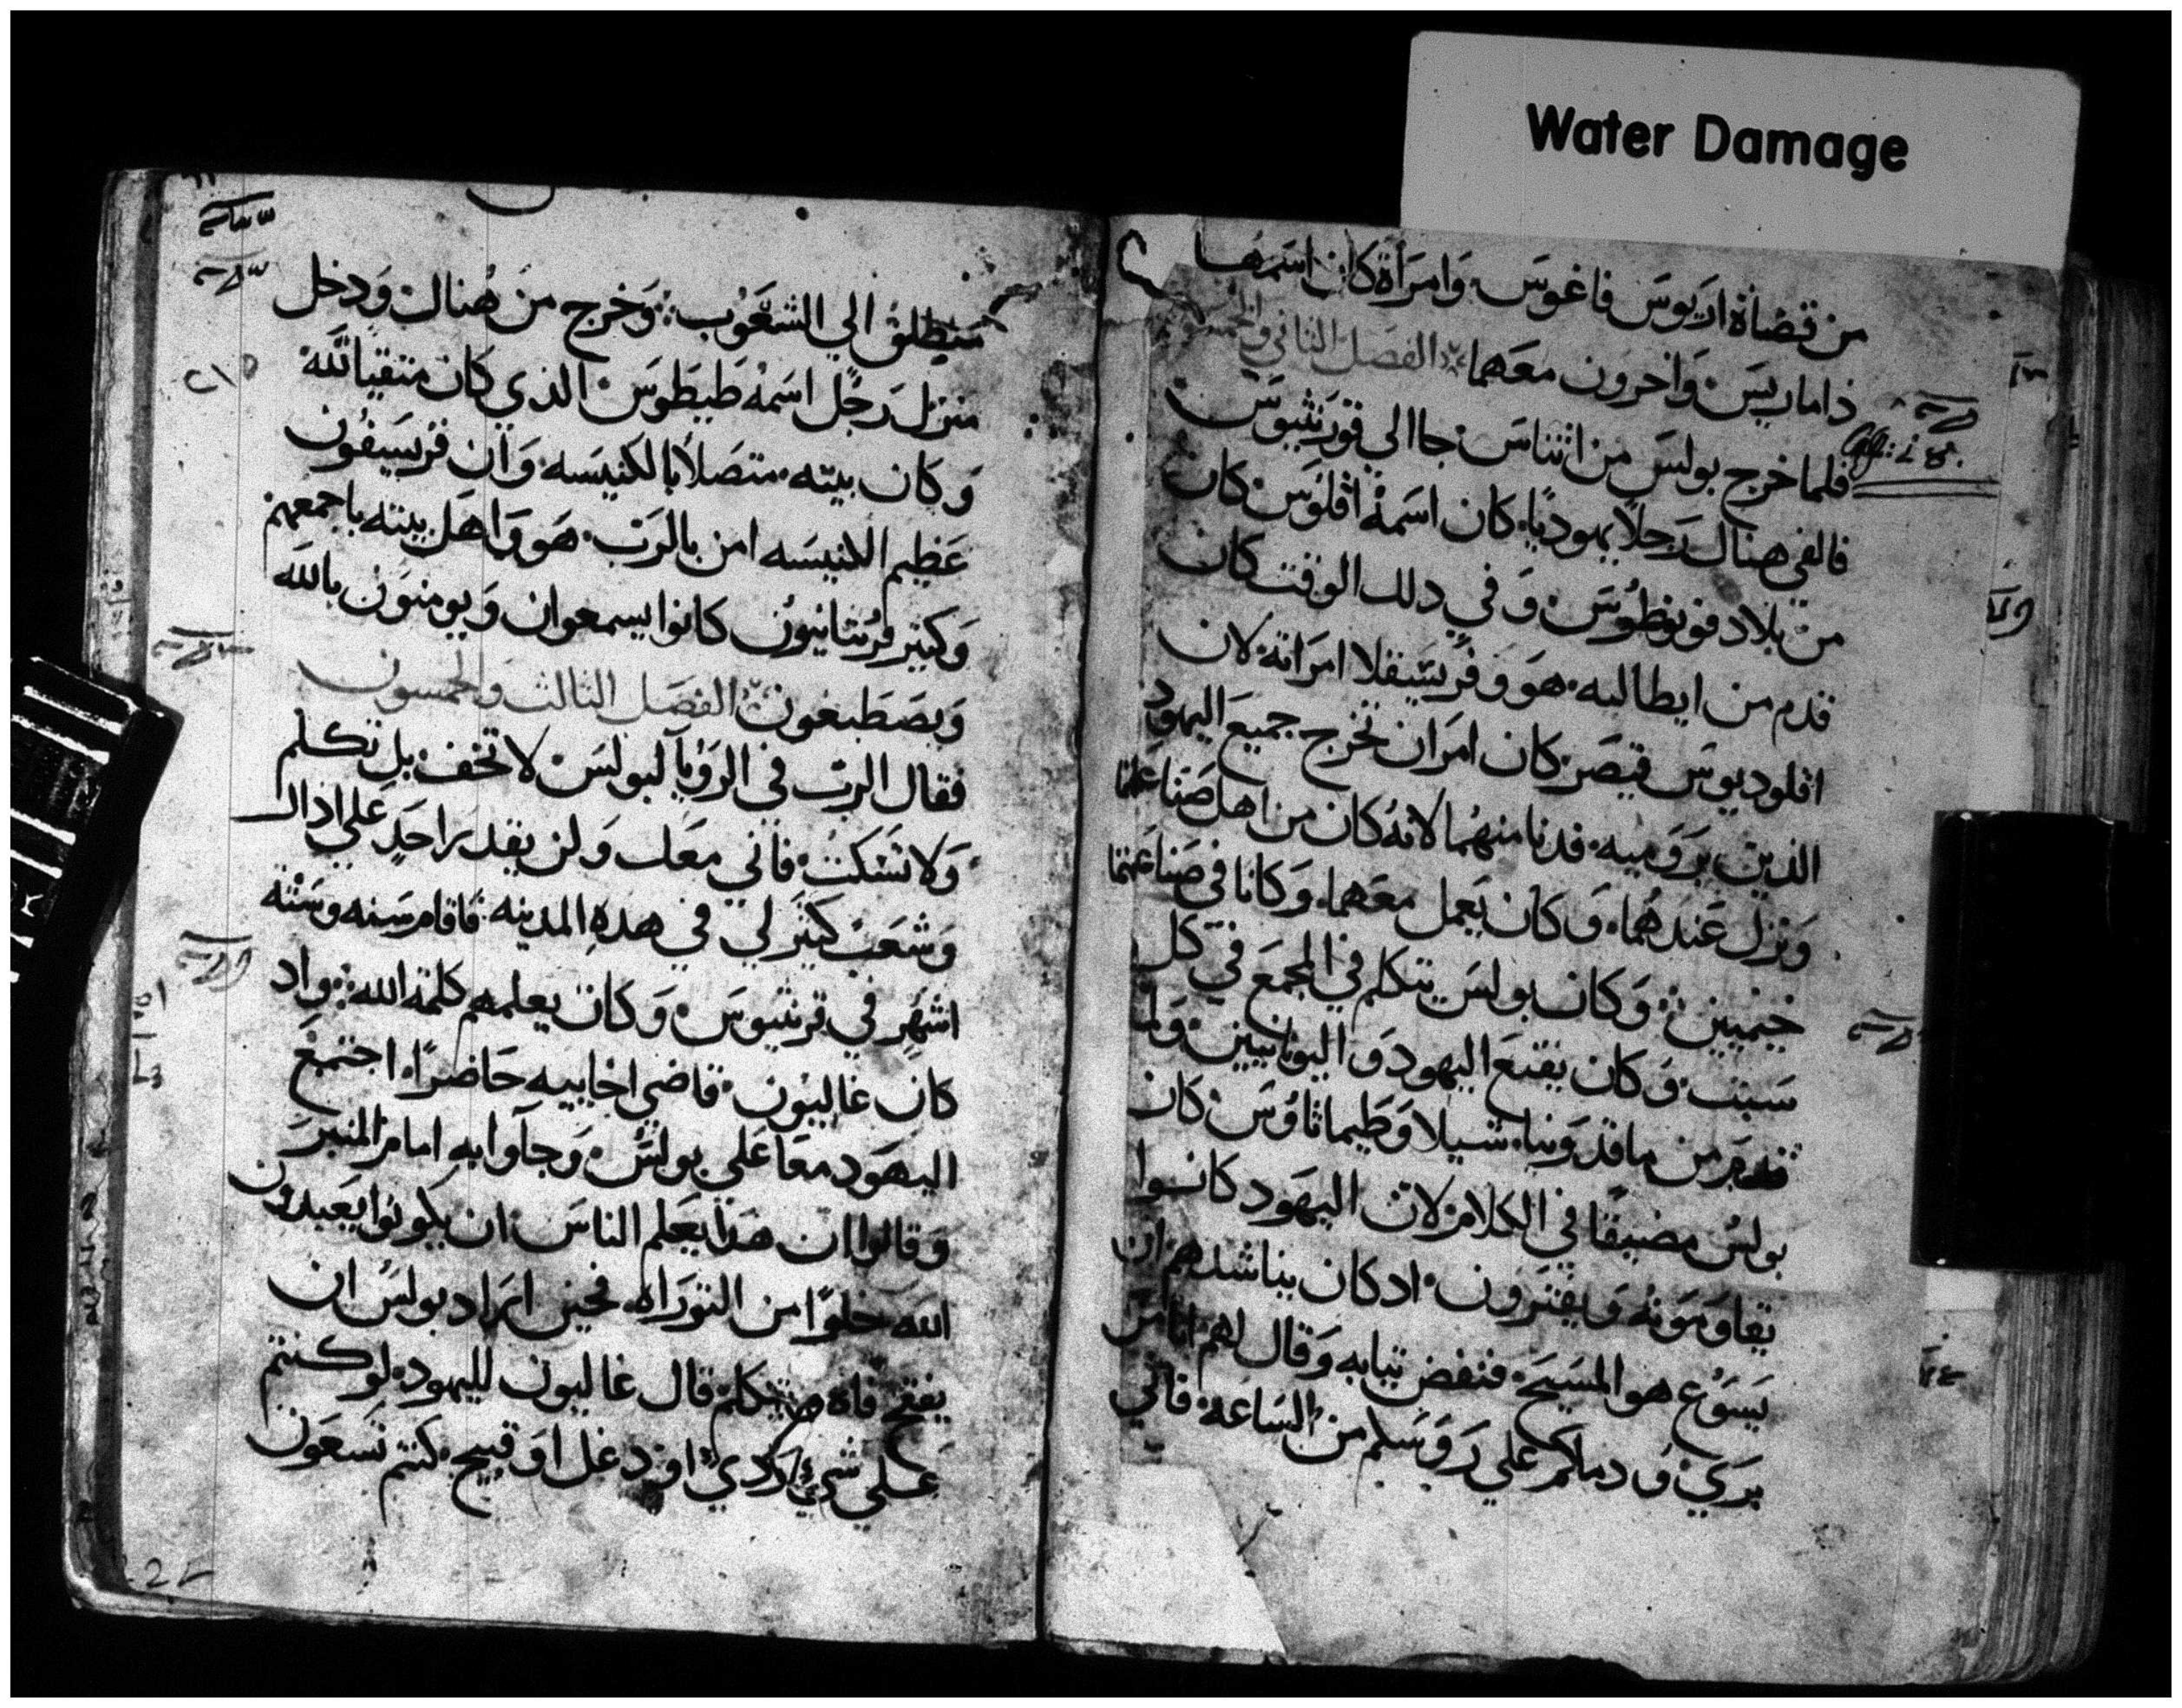 Water Damage
من قضاة اريوس فاغوس، وامراة كان اسمها
داماريس، واخرون معهما الفصل الثاني والخمسون
فلما خرج بولس من اثناس جا الي قورنثيوس
فالفي هناك رجلاً يهوديًا، كان اسمه اقلوس كان
من بلاد فونطوس، وفي دلك الوقت كان
قدم من ايطاليه، هو وفريسقلا امراته، لان
اقلوديوس قيصر، كان امر ان تخرج جميع اليهود
الذين برومية، فدنا منهما لانه كان من اهل صناعتهما
ونزل عندهما، وكان يعمل معهما، وكانا في صناعتهما
خيميين، وكان بولس يتكلم في المجمع في كل
سبت، وكان يقنع اليهود واليونانيين، ولما
قدم من ماقدونيا، شيلا وطيماثاوس، كان
بولس مضيقًا في الكلام، لان اليهود كانوا
يقاومونه ويفترون، اد كان يناشدهم ان
يسوع هو المسيح، فنفض ثيابه وقال لهم انا من
بري ودماكم علي روسلم من الساعة، فاني
منطلق الي الشعوب، وخرج من هناك ودخل
منزل رجل اسمه طيطوس، الذي كان متقيًا لله
وكان بيته، متصلاً بالكنيسه، وان فرسيفون
عظيم الكنيسه امن بالرب، هو واهل بيته باجمعهم
وكثير قرنثانيون كانوا يسمعوان ويومنون بالله
ويصطبغون، الفصل الثالث والخمسون
فقال الرب في الرويا لبولس لا تخف، بل تكلم
ولا تسكت، فاني معك ولن يقدر احد علي اداك
وشعب كثير لي في هده المدينه، فاقام سنه وستة
اشهر في قرنثيوس، وكان يعلمهم كلمة الله، واد
كان غاليون، قاضي اخاييه حاضرًا، اجتمع
اليهود معًا علي بولس، وجآوا به امام المنبر
وقالوا ان هدا يعلم الناس ان يكونوا يعبدون
الله خلوًا من التوراه، فحين اراد بولس ان
يفتح فاه ويتكلم، قال غاليون لليهود، لو كنتم
علي شيء ردي او دغل او قبيح، كنتم تسعون